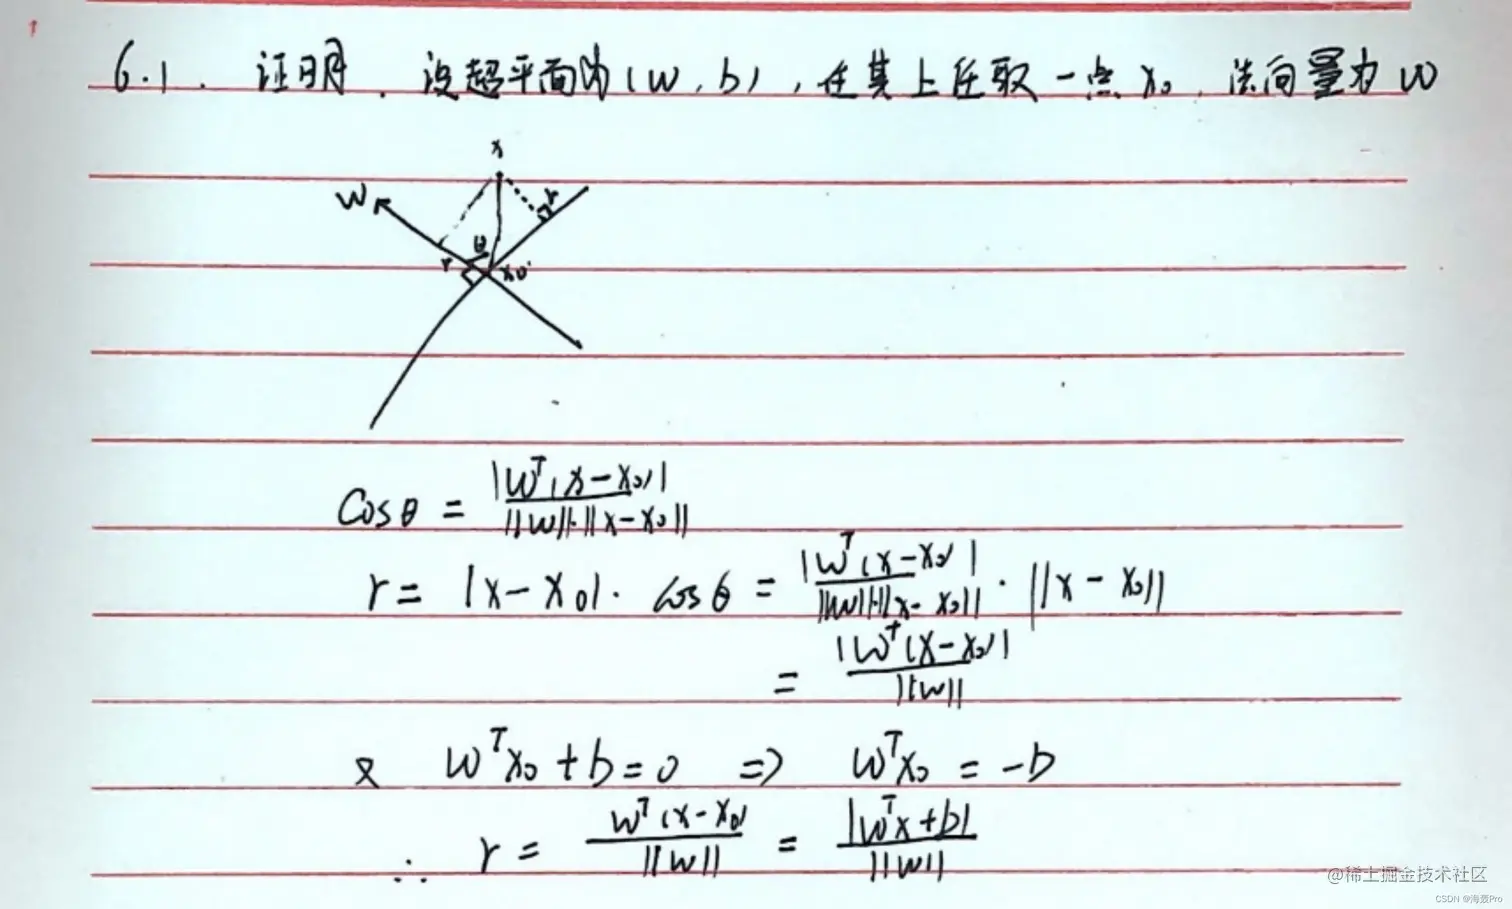 6.1. 证明. 设超平面为(w,b),在其上任取一点x₀,法向量为w
x
w
r
θ
r
x₀
Cosθ = |wᵀ(x-x₀)| / ||w||·||x-x₀||
r = |x-x₀|· cosθ = |wᵀ(x-x₀)| / ||w||·||x-x₀|| · ||x-x₀||
= |wᵀ(x-x₀)| / ||w||
又 wᵀx₀+b=0 => wᵀx₀=-b
∴ r = wᵀ(x-x₀) / ||w|| = |wᵀx+b| / ||w||
@稀土掘金技术社区
CSDN @海轰Pro